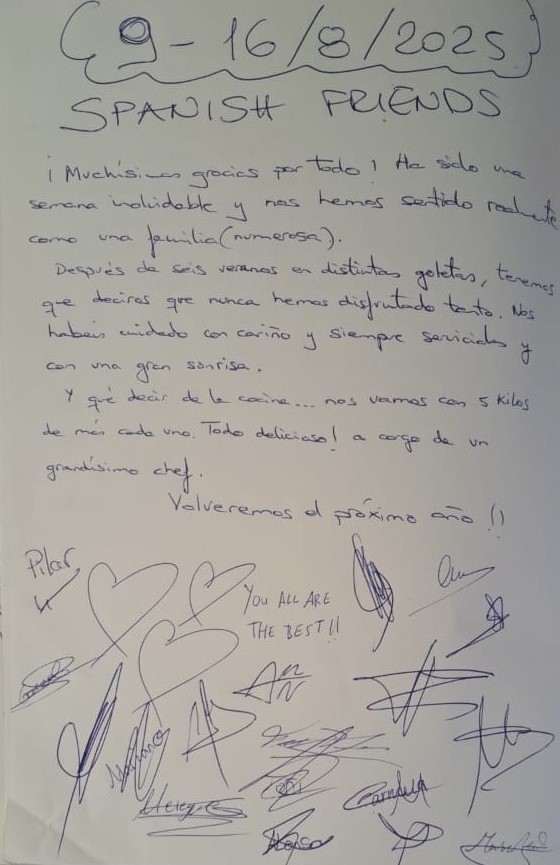 9-16/8/2025
SPANISH FRIENDS
¡Muchísimas gracias por todo! Ha sido una
semana inolvidable y nos hemos sentido realmente
como una familia (numerosa).
Después de seis veranos en distintas goletas, tenemos
que deciros que nunca hemos disfrutado tanto. Nos
habeis cuidado con cariño y siempre serviciales y
con una gran sonrisa.
Y qué decir de la cocina... nos vamos con 5 kilos
de más cada uno. Todo delicioso! a cargo de un
grandísimo chef.
Volveremos el próximo año!!
Pilar
YOU ALL ARE
THE BEST!!